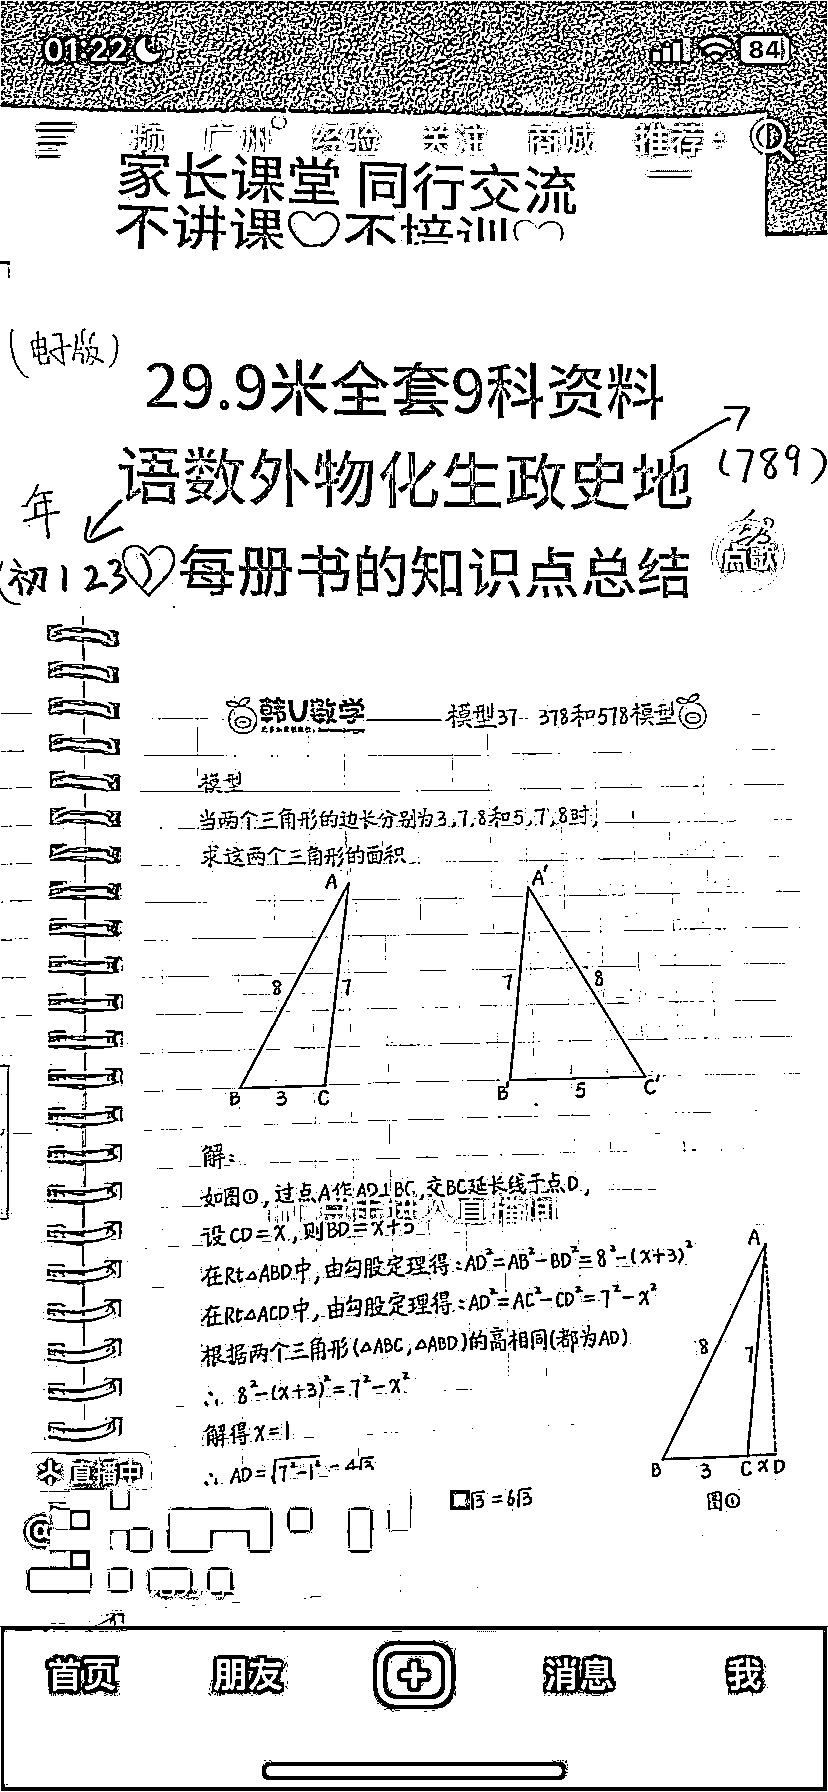 01:22
84
频 广州 经验 关注 商城 推荐
家长课堂 同行交流
不讲课♡不培训♡
(电子版)
29.9米全套9科资料
语数外物化生政史地
(789)
年
(初123)
♡每册书的知识点总结
点歌
韩U数学
模型37 378和578模型
模型
当两个三角形的边长分别为3,7,8和5,7,8时,
求这两个三角形的面积
A
A'
8
7
7
8
B 3 C
B' 5 C'
解:
如图①,过点A作AD⊥BC,交BC延长线于点D,
点击进入直播间
设CD=x,则BD=x+3
在Rt△ABD中,由勾股定理得:AD²=AB²-BD²=8²-(x+3)²
在Rt△ACD中,由勾股定理得:AD²=AC²-CD²=7²-x²
根据两个三角形(△ABC,△ABD)的高相同(都为AD)
∴ 8²-(x+3)²=7²-x²
解得x=1
∴ AD=√7²-1²=4√3
A
8
7
B 3 C x D
图①
直播中
√3=6√3
@
首页 朋友 消息 我